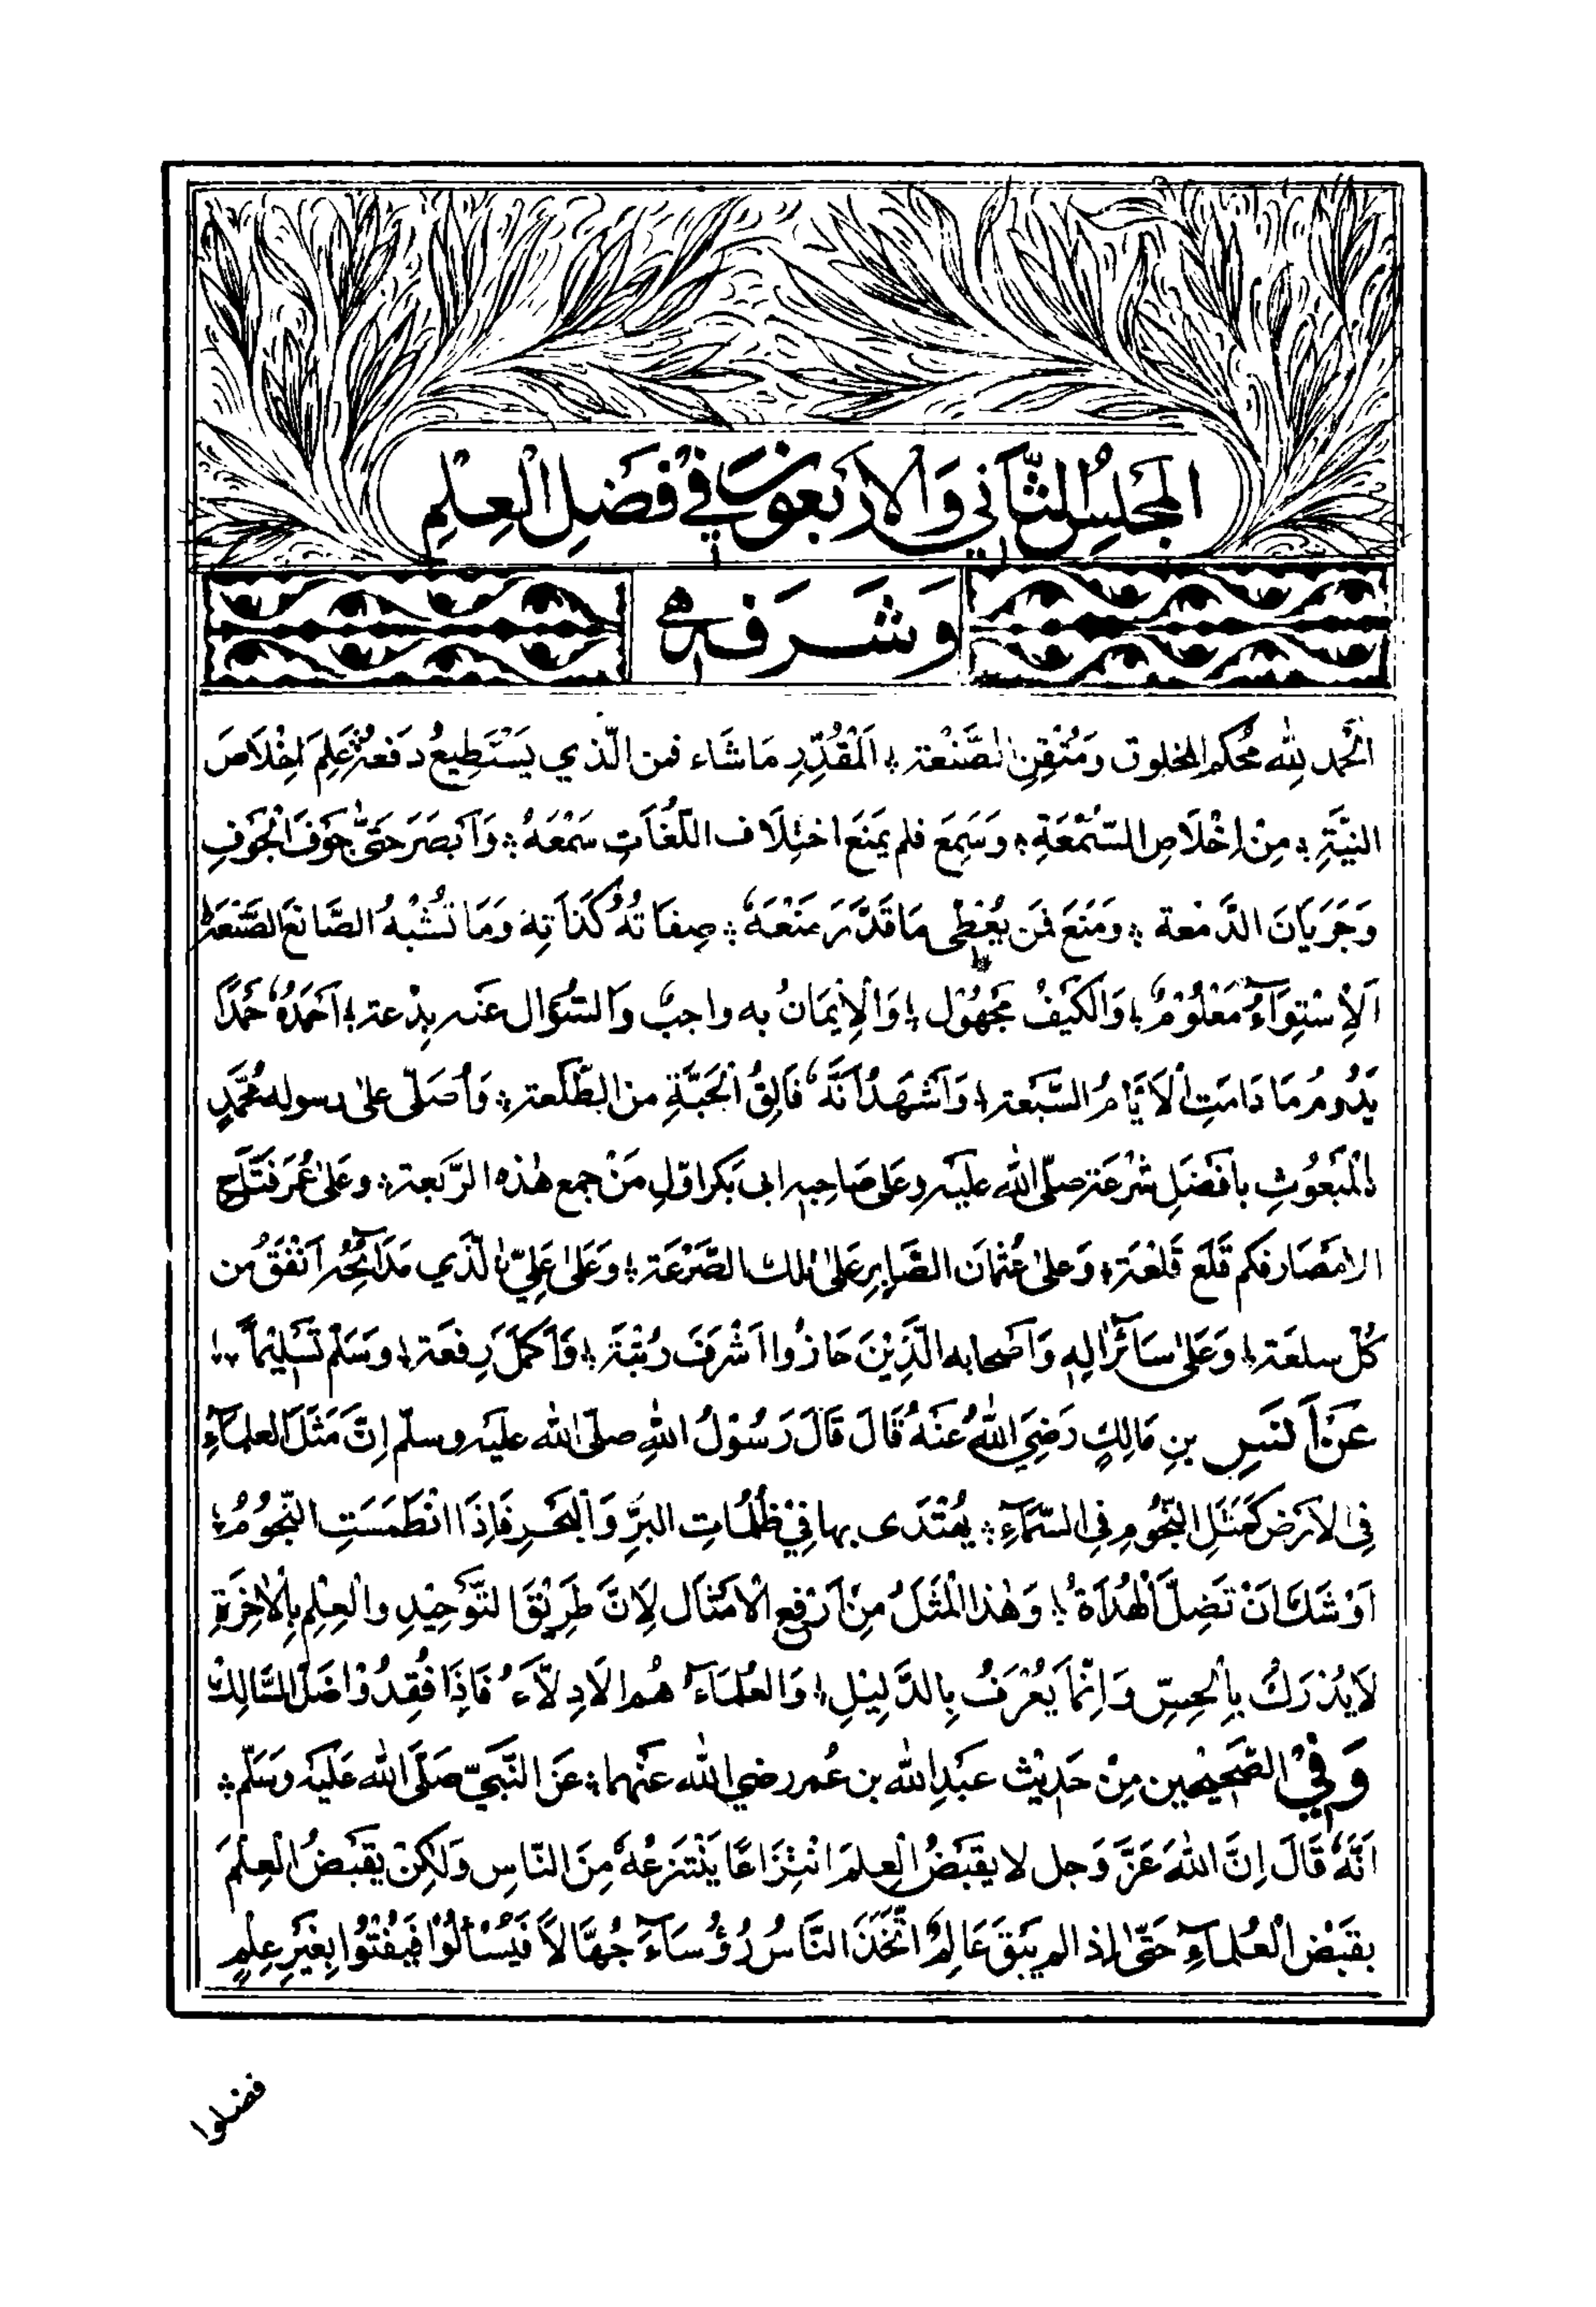 المَجْلِسُ الثَّانِي وَالْاَرْبَعُونَ فِي فَضْلِ الْعِلْمِ
وَشَرَفِهِ
اَلْحَمْد لِلّٰهِ مُحْكم المخلوق وَمُتْقِنِ الصَّنْعَة ؞ اَلْمُقَدِّرِ مَا شَاء فمن الّذي يَسْتَطِيعُ دَفعَهُ ؞ عَلِمَ اِخْلَاصَ
النِيَّةِ ؞ مِنْ اِخْلَاصِ السُّمْعَةِ ؞ وَسَمِعَ فلم يَمْنَع اختِلَاف اللُّغَاتِ سَمْعَهُ ؞ وَاَبْصَرَ حَتّٰى جَوْفَ الْجَوْفِ
وَجَرَيَانَ الدَّمْعَة ؞ وَمَنَعَ فَمَن يُعْطِى مَا قَدَّرَ مَنْعَهٗ ؞ صِفَاتُهُ كَذَاتِهٖ وَمَا تُشْبِهُ الصَّانِعَ الصَّنْعَة
اَلْاِسْتِوَآءُ مَعْلُوْمٌ ؞ وَالكَيْفُ مَجْهُوْل ؞ وَالْاِيْمَانُ به واجبٌ وَالسُّؤَال عَنه بِدْعَة ؞ اَحْمَدُهٗ حَمْدًا
يَدُومُ مَا دَامَتِ الْاَيَّامُ السَّبْعَة ؞ وَاَشْهَدُ اَنَّهٗ فَالِقُ الْحَبَّةِ من الطَّلْعَة ؞ وَاُصَلّى على رسوله مُحَمَّدٍ
الْمَبْعُوْثِ بِاَفْضَلِ شِرْعَة صلّى اللّٰه عليه وعَلى صَاحِبِه ابى بَكر اوّلِ مَنْ جمع هٰذه الرَّبْعة ؞ وعَلىٰ عُمَرَ فَتَّاحِ
الاَمْصَار فكم قَلَعَ قَلْعَة ؞ وَعلىٰ عُثْمَان الصَّابِرِ عَلىٰ تلك الصَّرْعَة ؞ وَعَلىٰ عَلِيّ الَّذَي مَدَائِحُهٗ اَنْفَقُ من
كُلّ سِلعَة ؞ وَعَلى سَآئرِ اٰلِهِ وَاَصْحَابه الَّذِيْنَ حَازُوا اَشْرَفَ رُتْبَة ؞ وَاَكمَلَ رِفعَة ؞ وسَلّم تَسْلِيْمًا ؞
عَنْ اَنَسِ بنِ مَالِكٍ رَضِيَ اللهُ عَنْهُ قَالَ قَالَ رَسُوْلُ اللهِ صلّى اللّٰه عليه وسلّم اِنَّ مَثَلَ العلمَآءِ
فِى الاَرْضِ كَمَثَلِ النُّجُوْمِ فِى السَّمَآءِ ؞ يُهْتَدَى بها فِيْ ظُلُمَاتِ البَرِّ وَالْبَحْرِ فَاِذَا انْطَمَسَتِ النُّجُوْمُ ؞
اَوْشَكَ اَنْ تَضِلَّ الْهُدَاةُ ؞ وَهٰذا الْمَثَلُ مِنْ اَرْفَعِ الْاَمْثَال لِاَنَّ طَرِيْقَ التَّوْحِيْدِ والْعِلْمِ بِالْاٰخِرَةِ
لَايُدْرَكُ بِالْحِسِّ وَاِنَّمَا يُعْرَفُ بِالدَّلِيْلِ ؞ وَالعُلَمَآءُ هُمُ الْاَدِلَّآءُ فَاِذَا فُقِدُوْا ضَلَّ السَّالِكُ
وَفِيْ الصَّحِيْحين مِنْ حَدِيْث عَبْدِ اللّٰه بن عُمر رضي اللّٰه عَنْهُمَا ؞ عَنِ النَّبِيّ صَلَّى اللّٰه عَلَيْه وَسَلَّم ؞
اَنَّهٗ قَالَ اِنَّ اللّٰهَ عَزَّ وَجل لا يقبَضُ الْعِلمَ انْتِزَاعًا يَنْتَزِعُهٗ مِنَ النّاسِ وَلٰكِنْ يقبَضُ الْعِلْمَ
بقَبْضِ الْعُلمآءِ حَتّٰى اِذا لم يَبْقَ عَالِمٌ اتَّخَذَ النَّاسُ رُؤُسَآءَ جُهَّالًا فَيُسْئَالُوْا فَيُفْتُوْا بِغَيْرِ عِلْمٍ
فضلوا